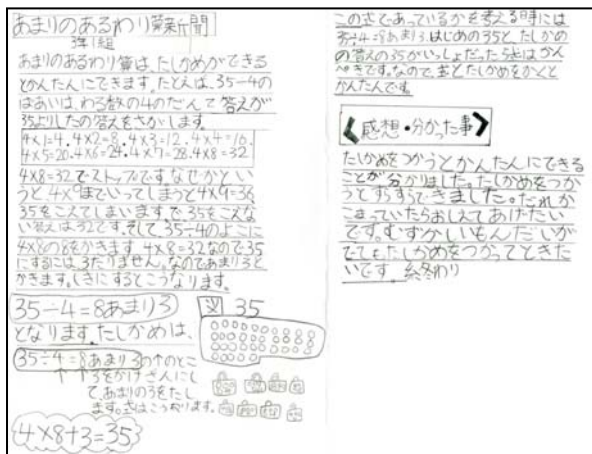 あまりのあるわり算新聞
3年1組
あまりのあるわり算は、たしかめができる
とかんたんにできます。たとえば、35÷4の
ばあいは、わる数の4のだんで答えが
35よりしたの答えをさがします。
4×1=4.4×2=8.4×3=12.4×4=16.
4×5=20.4×6=24.4×7=28.4×8=32.
4×8=32でストップです。なぜかとい
うと4×9までいってしまうと4×9=36
35をこえてしまいます。で、35をこえな
い答えは32です。そして35÷4のよこに
4×8の8をかきます。4×8=32なので35
にするには3たりません。なのであまり3と
かきます。しきにするとこうなります。
35÷4=8あまり3
となります。たしかめは、
35÷4=8あまり3の↑のとこ
↑ ↑ろをかけざんにし
て、あまりの3をたし
ます。式はこうなります。
4×8+3=35
図 35
この式であっているかを考える時には
35÷4=8あまり3.はじめの35と、たしかめ
の答えの35がいっしょだったら式はかん
ぺきです。なので、式とたしかめをかくと
かんたんです。
感想・分かった事
たしかめをつかうとかんたんにできる
ことが分かりました。たしかめをつか
うとすらすらできました。だれか
こまっていたらおしえてあげたい
です。むずかしいもんだいが
でてもたしかめをつかってときた
いです。 終わり